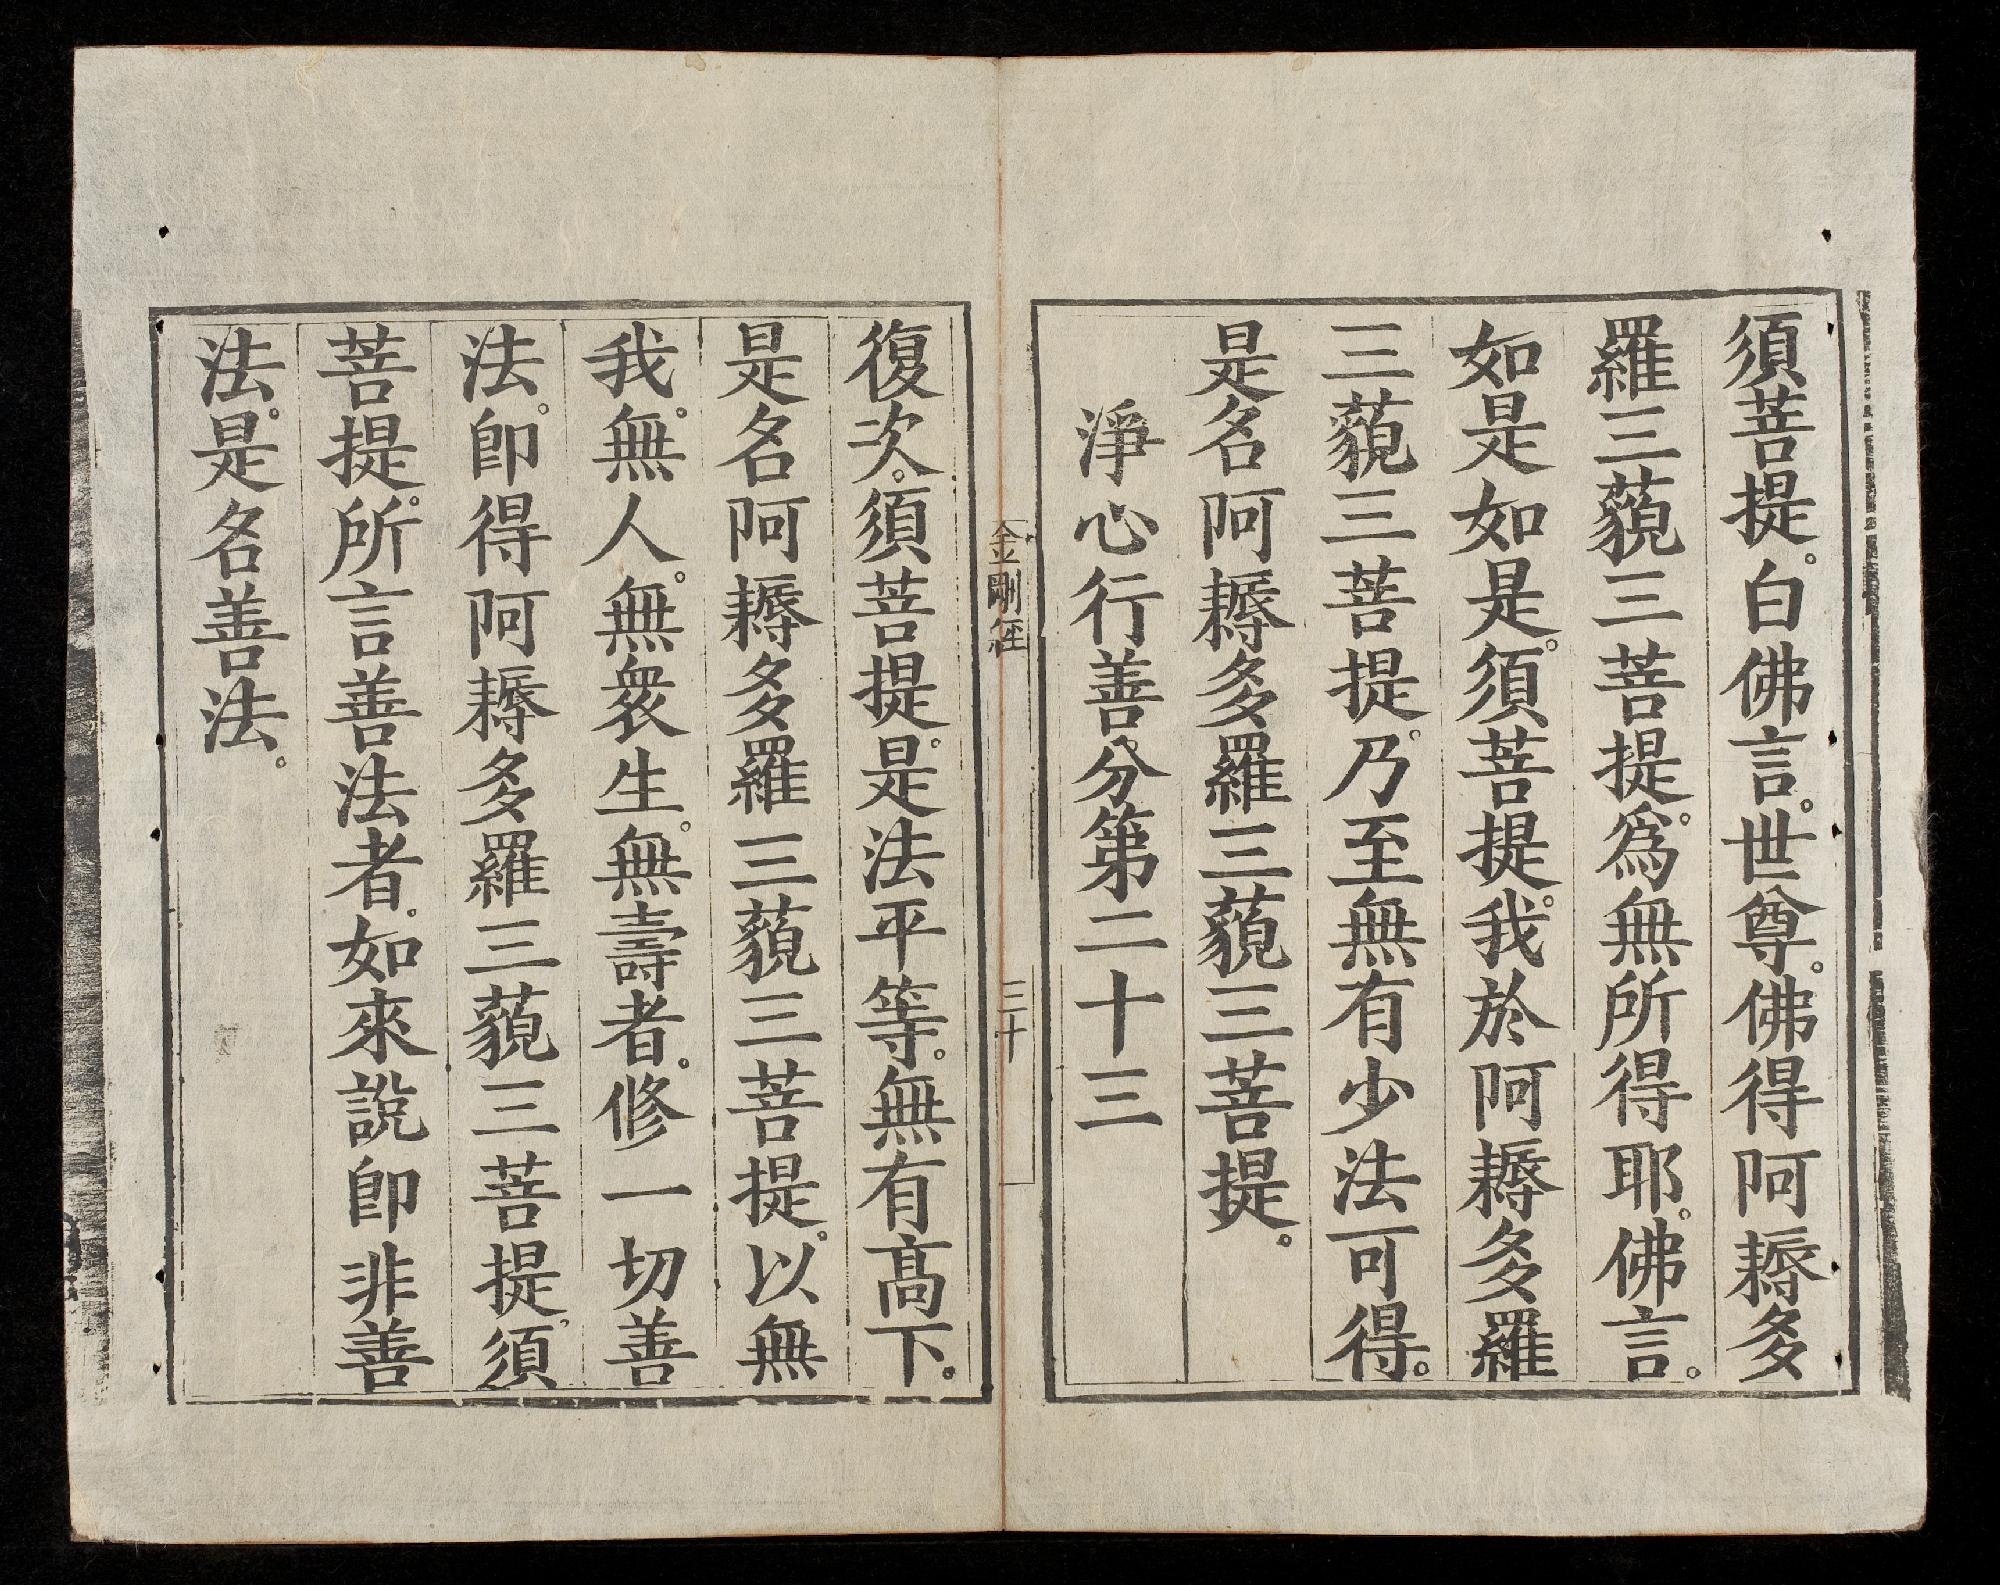 須菩提。白佛言。世尊。佛得阿耨多
羅三藐三菩提。爲無所得耶。佛言。
如是如是。須菩提。我於阿耨多羅
三藐三菩提。乃至無有少法可得。
是名阿耨多羅三藐三菩提。
淨心行善分第二十三
金剛經
三十
復次。須菩提。是法平等。無有高下。
是名阿耨多羅三藐三菩提。以無
我。無人。無衆生。無壽者。修一切善
法。卽得阿耨多羅三藐三菩提。須
菩提。所言善法者。如來說卽非善
法。是名善法。